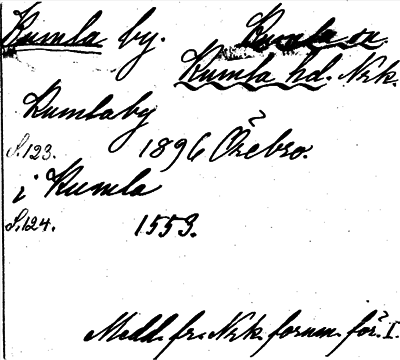 Kumla by. Kumla sn.
Kumla hd. Nrk.
Kumlaby
S.123. 1896 Örebro.
i Kumla
S.124. 1553.
Medd. fr. Nrk. fornm. för. I.